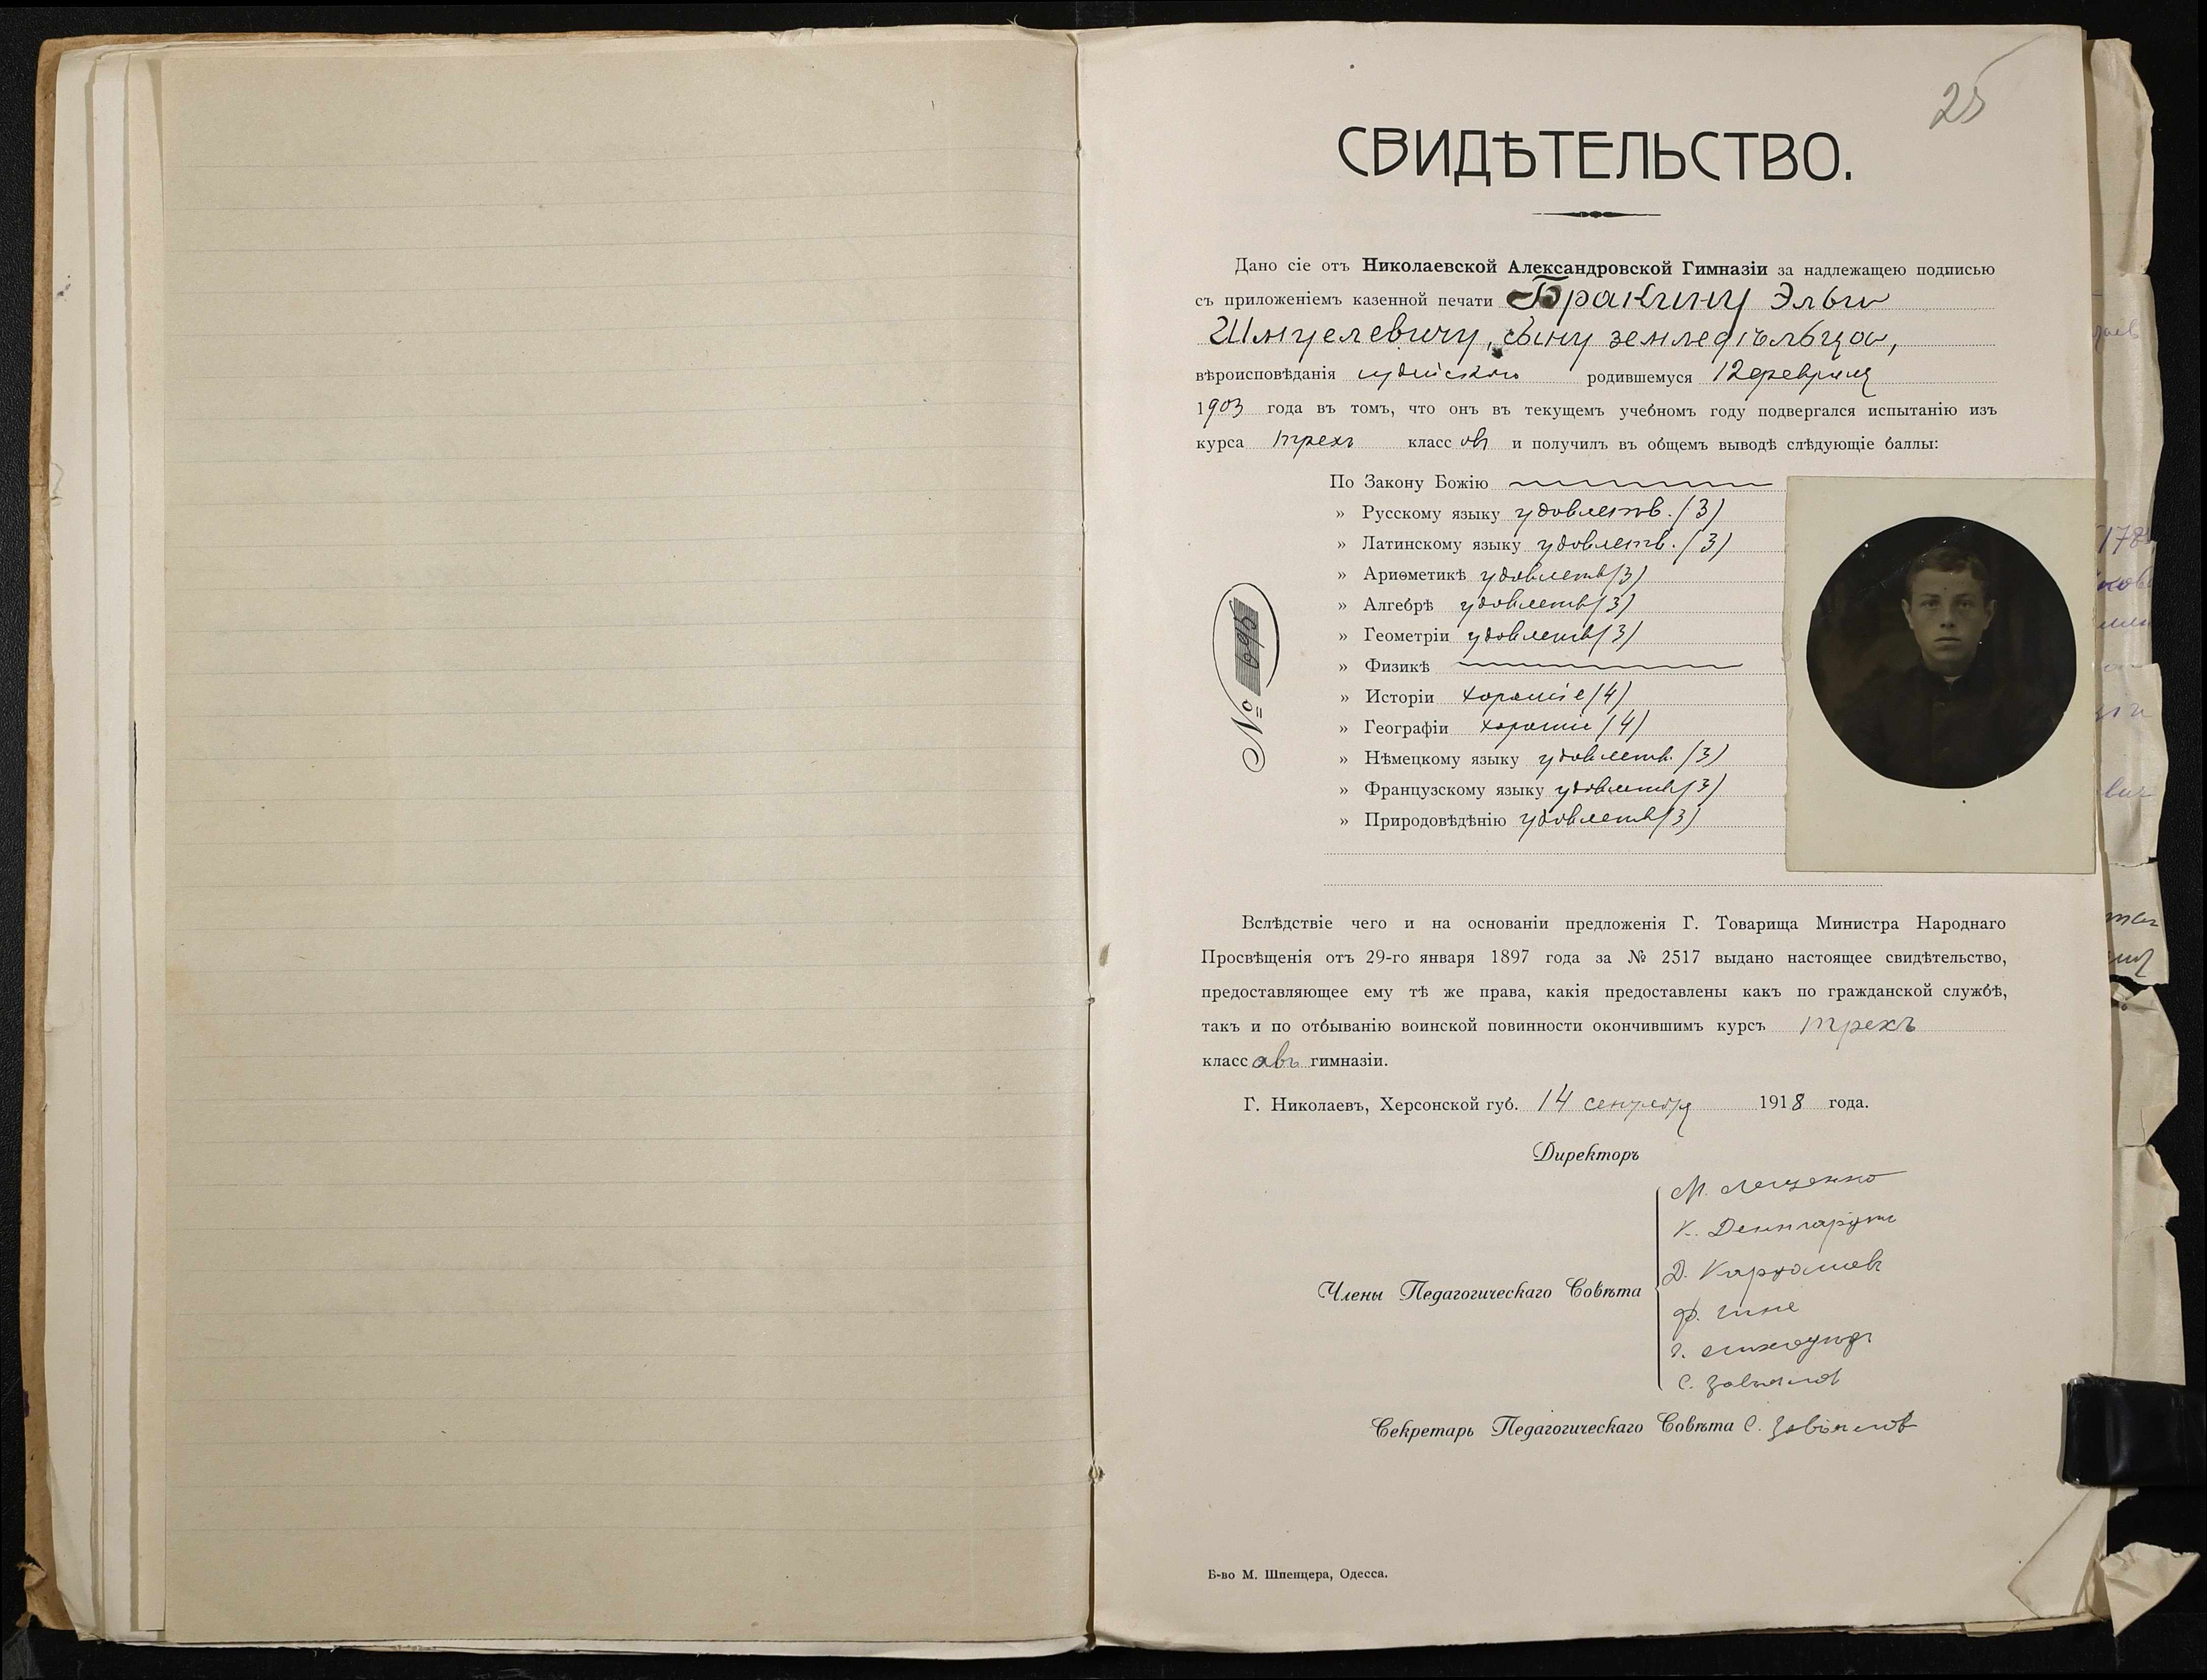 25
СВИДѢТЕЛЬСТВО.
Дано сіе отъ Николаевской Александровской Гимназіи за надлежащею подписью
съ приложеніемъ казенной печати Бракину Эльи
Шмулевичу, сыну земледѣльца,
вѣроисповѣданія іудейскаго родившемуся 12 февраля
1903 года въ томъ, что онъ въ текущемъ учебномъ году подвергался испытанію изъ
курса трехъ классовъ и получилъ въ общемъ выводѣ слѣдующіе баллы:
По Закону Божію
» Русскому языку удовлетв. (3)
» Латинскому языку удовлетв. (3)
» Ариѳметикѣ удовлетв (3)
» Алгебрѣ удовлетв (3)
» Геометріи удовлетв (3)
» Физикѣ
» Исторіи хорошіе (4)
» Географіи хорошіе (4)
» Нѣмецкому языку удовлетв. (3)
» Французскому языку удовлетв (3)
» Природовѣдѣнію удовлетв (3)
№ 695
Вслѣдствіе чего и на основаніи предложенія Г. Товарища Министра Народнаго
Просвѣщенія отъ 29-го января 1897 года за № 2517 выдано настоящее свидѣтельство,
предоставляющее ему тѣ же права, какія предоставлены какъ по гражданской службѣ,
такъ и по отбыванію воинской повинности окончившимъ курсъ трехъ
классовъ гимназіи.
Г. Николаевъ, Херсонской губ. 14 сентября 1918 года.
Директоръ
М. Лещенко
К.
Д. Карташевъ
Члены Педагогическаго Совѣта
Ф. Гине
С. Завьялов
Секретарь Педагогическаго Совѣта С. Завьялов
Б-во М. Шпенцера, Одесса.